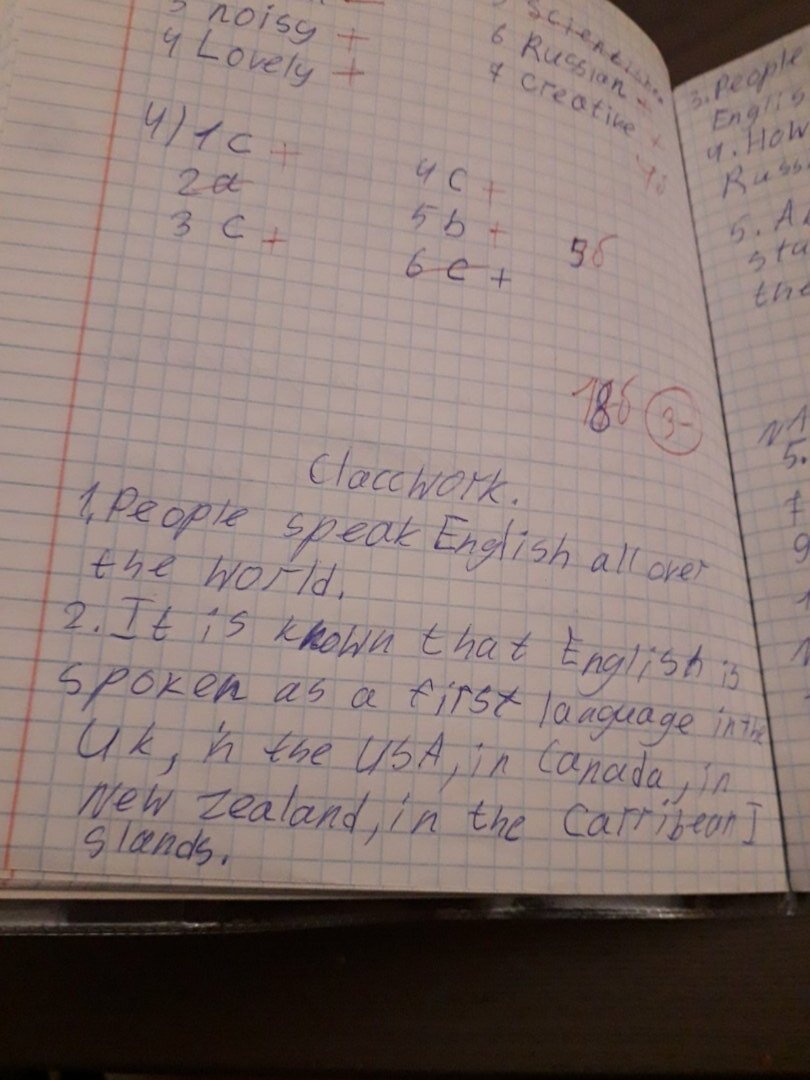 3 noisy +
4 Lovely +
6 Russian +
7 creative +
4) 1 c +
2 a
3 c +
4 c +
5 b +
6 c +
5б
18б 3-
Classwork.
1. People speak English all over
the world.
2. It is known that English is
spoken as a first language in the
UK, in the USA, in Canada, in
New Zealand, in the Carribean I
slands.
3. People
Englis
4. How
Russ
5. A
sta
the
N1
5.
7
9